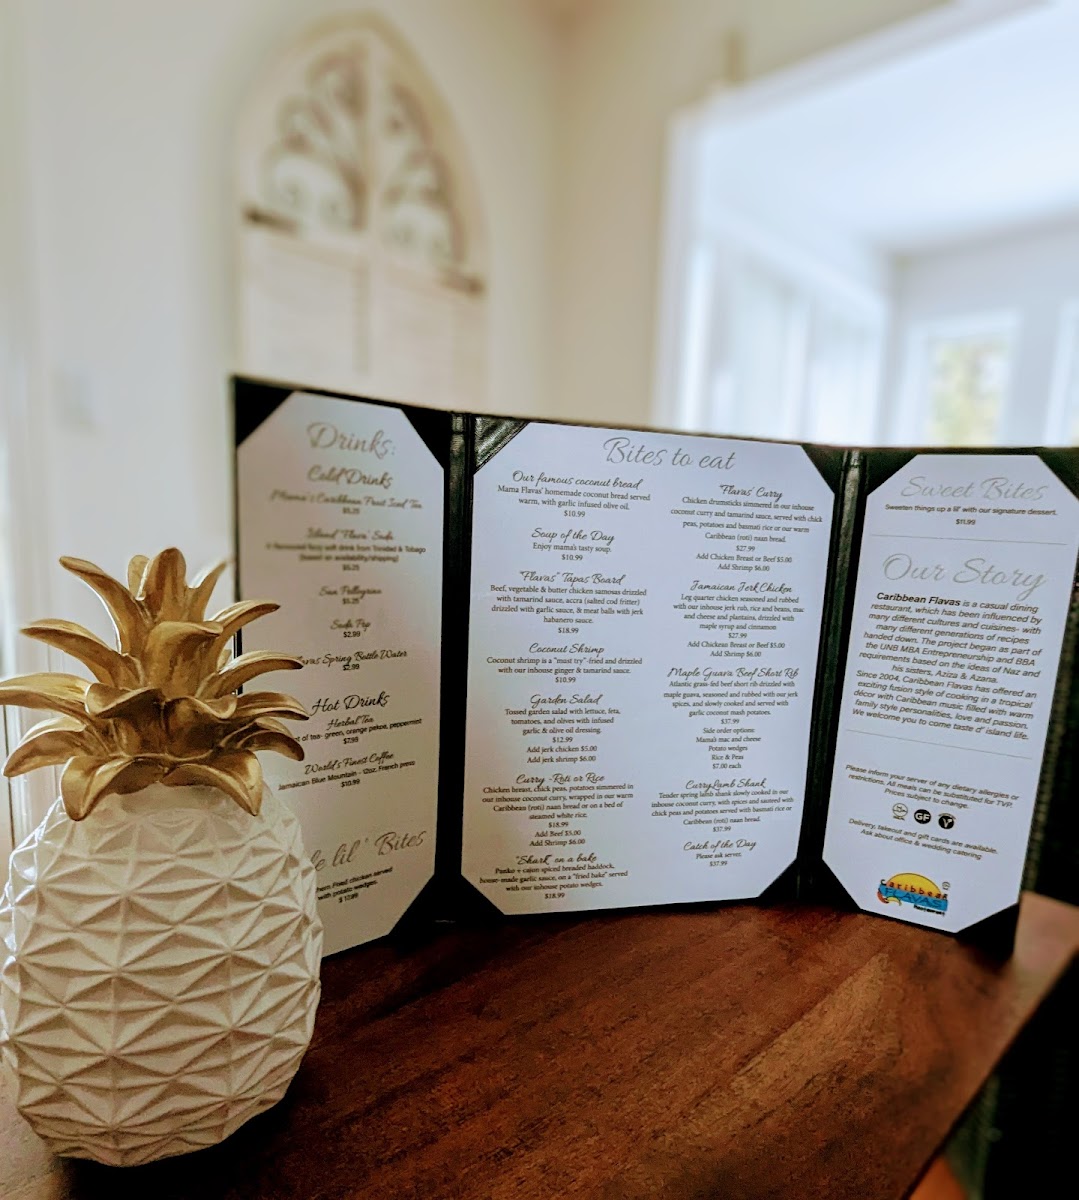 Drinks:
Cold Drinks
Mama's Caribbean Fruit Iced Tea
$5.25
Island "Flava" Soda
flavoured fizzy soft drink from Trinidad & Tobago
(based on availability/shipping)
$5.25
San Pellegrino
$5.25
Soda Pop
$2.99
Spring Bottle Water
$2.99
Hot Drinks
Herbal Tea
of tea- green, orange pekoe, peppermint
$7.99
World's Finest Coffee
Jamaican Blue Mountain - 12oz. French press
$10.99
lil' Bites
fried chicken served
with potato wedges.
$10.99
Bites to eat
Our famous coconut bread
Mama Flavas' homemade coconut bread served
warm, with garlic infused olive oil.
$10.99
Soup of the Day
Enjoy mama's tasty soup.
$10.99
"Flavas" Tapas Board
Beef, vegetable & butter chicken samosas drizzled
with tamarind sauce, accra (salted cod fritter)
drizzled with garlic sauce, & meat balls with jerk
habanero sauce.
$18.99
Coconut Shrimp
Coconut shrimp is a "must try"-fried and drizzled
with our inhouse ginger & tamarind sauce.
$10.99
Garden Salad
Tossed garden salad with lettuce, feta,
tomatoes, and olives with infused
garlic & olive oil dressing.
$12.99
Add jerk chicken $5.00
Add jerk shrimp $6.00
Curry -Roti or Rice
Chicken breast, chick peas, potatoes simmered in
our inhouse coconut curry, wrapped in our warm
Caribbean (roti) naan bread or on a bed of
steamed white rice.
$18.99
Add Beef $5.00
Add Shrimp $6.00
"Shark" on a bake
Panko + cajun spiced breaded haddock,
house-made garlic sauce, on a "fried bake" served
with our inhouse potato wedges.
$18.99
"Flavas' Curry
Chicken drumsticks simmered in our inhouse
coconut curry and tamarind sauce, served with chick
peas, potatoes and basmati rice or our warm
Caribbean (roti) naan bread.
$27.99
Add Chicken Breast or Beef $5.00
Add Shrimp $6.00
Jamaican Jerk Chicken
Leg quarter chicken seasoned and rubbed
with our inhouse jerk rub, rice and beans, mac
and cheese and plantains, drizzled with
maple syrup and cinnamon
$27.99
Add Chickean Breast or Beef $5.00
Add Shrimp $6.00
Maple Guava Beef Short Rib
Atlantic grass-fed beef short rib drizzled with
maple guava, seasoned and rubbed with our jerk
spices, and slowly cooked and served with
garlic coconut mash potatoes.
$37.99
Side order options
Mama's mac and cheese
Potato wedges
Rice & Peas
$7.00 each
Curry Lamb Shank
Tender spring lamb shank slowly cooked in our
inhouse coconut curry, with spices and sauteed with
chick peas and potatoes served with basmati rice or
Caribbean (roti) naan bread.
$37.99
Catch of the Day
Please ask server.
$37.99
Sweet Bites
Sweeten things up a lil' with our signature dessert.
$11.99
Our Story
Caribbean Flavas is a casual dining
restaurant, which has been influenced by
many different cultures and cuisines- with
many different generations of recipes
handed down. The project began as part of
the UNB MBA Entrepreneurship and BBA
requirements based on the ideas of Naz and
his sisters, Aziza & Azana.
Since 2004, Caribbean Flavas has offered an
exciting fusion style of cooking in a tropical
décor with Caribbean music filled with warm
family style personalities, love and passion.
We welcome you to come taste d' island life.
Please inform your server of any dietary allergies or
restrictions. All meals can be substituted for TVP.
Prices subject to change.
GF
V
Delivery, takeout and gift cards are available.
Ask about office & wedding catering
Caribbean
FLAVAS
Restaurant